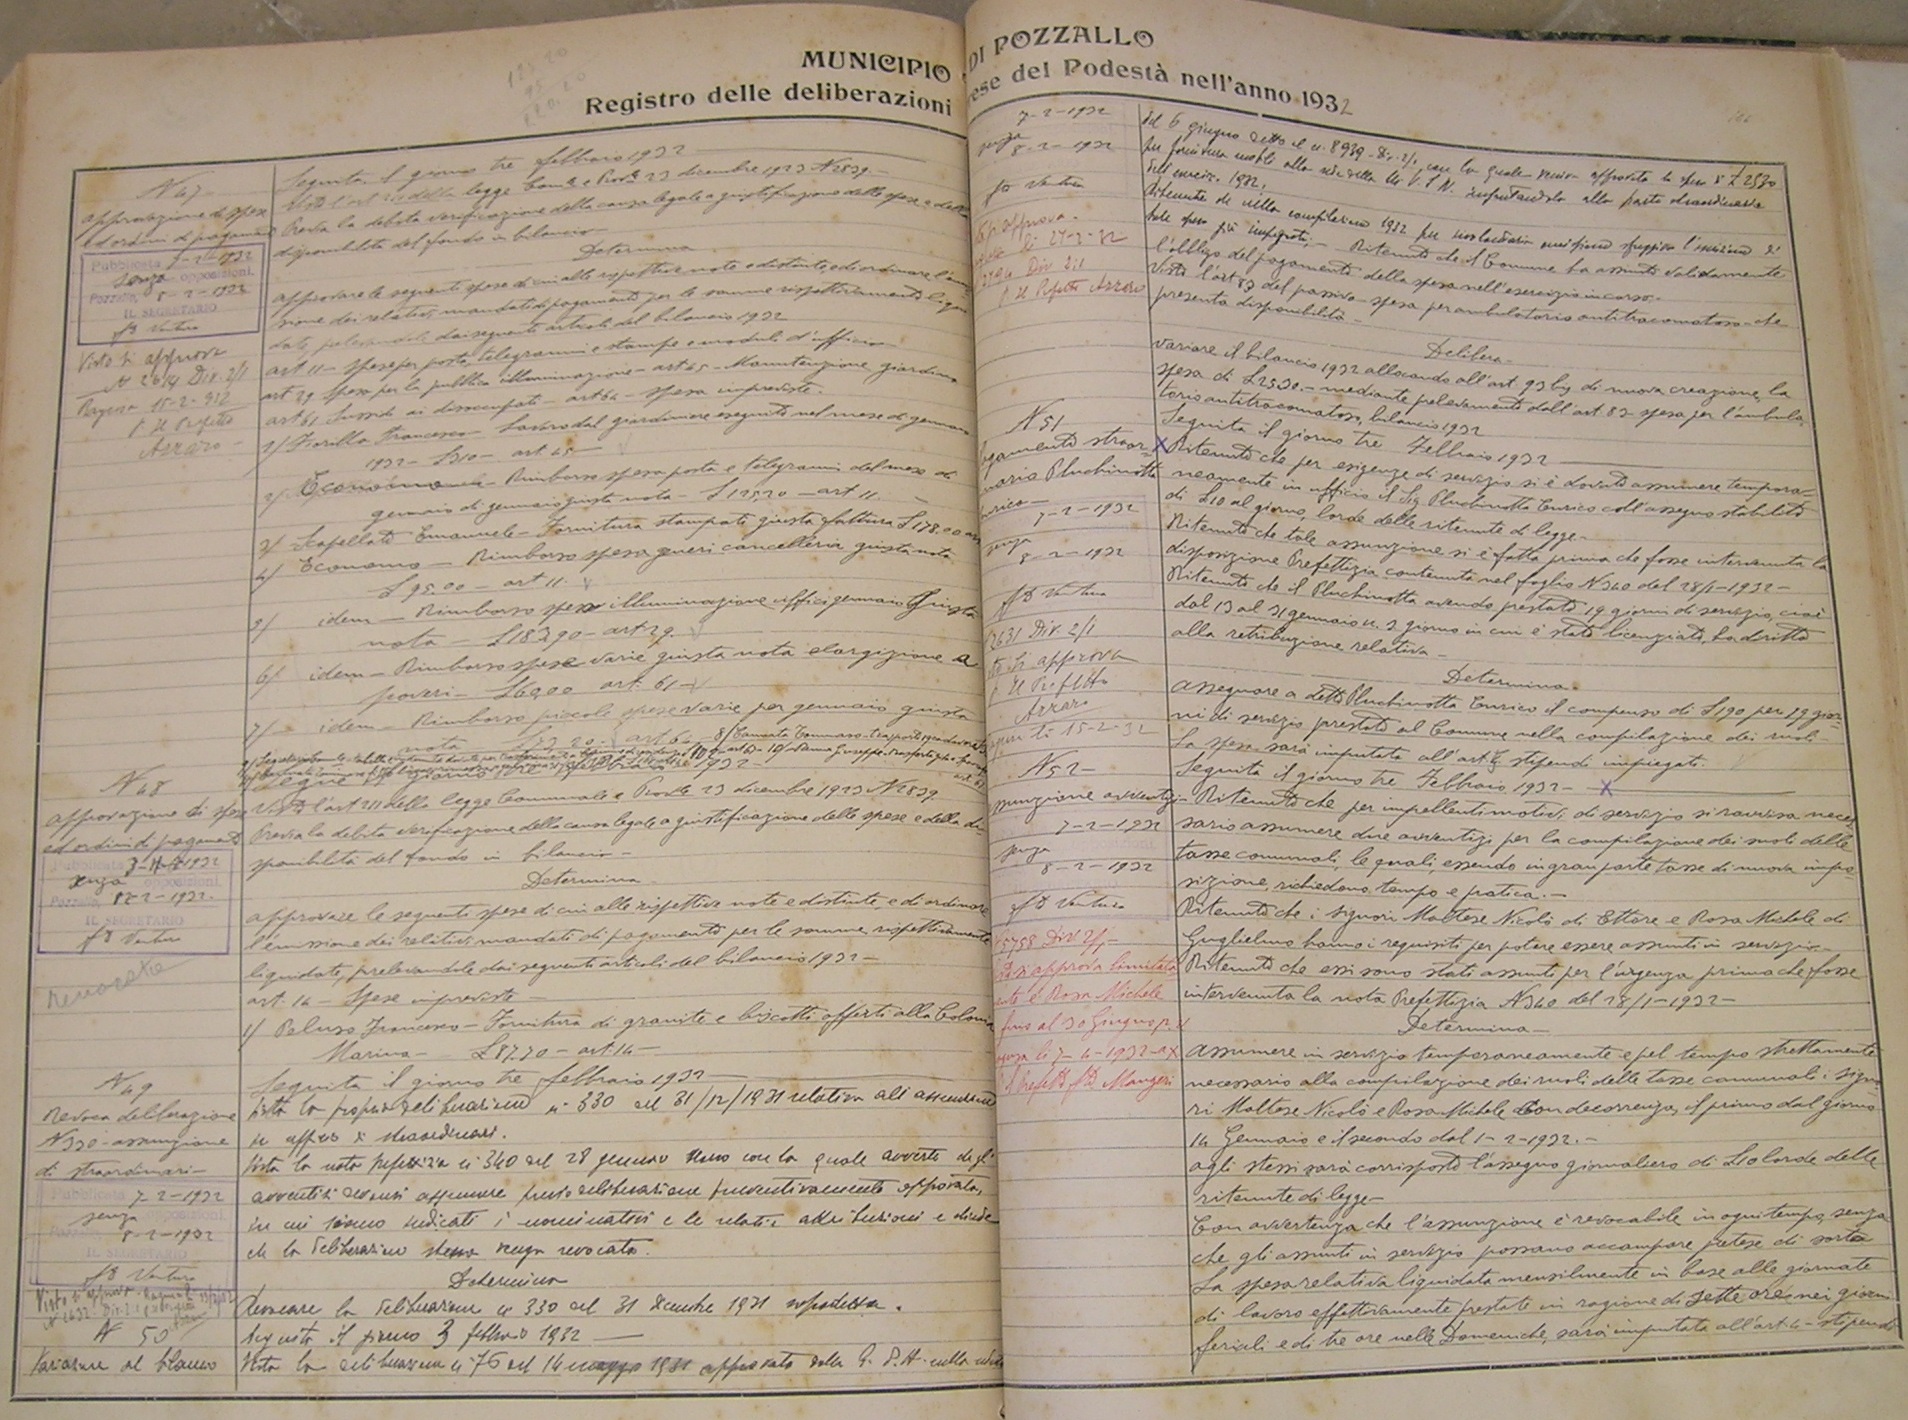 MUNICIPIO DI POZZALLO
Registro delle deliberazioni prese del Podestà nell'anno 1932
Seguita il giorno tre febbraio 1932
N 47
approvazione di spese
ed ordini di pagamento
Pubblicata 7-2-1932
senza opposizioni.
Pozzallo, 8-2-1932
IL SEGRETARIO
fto Ventura
Visto si approva
N 2614 Div. 2/1
Ragusa 15-2-932
p. Il Prefetto
Azzaro
Visto l'art 211 della legge Com.le e Prov.le 23 dicembre 1923 N 2839.
Previa la debita verificazione della causa legale a giustificazione delle spese e della
disponibilità del fondo in bilancio
Determina
approvare le seguenti spese di cui alle rispettive note e distinte, e di ordinare l'emis
sione dei relativi mandati di pagamento per le somme rispettivamente liqui
date, prelevandole dai seguenti articoli del bilancio 1932
art 11 - Spese per posta, telegrammi e stampe e moduli d'ufficio
art 29 Spese per la pubblica illuminazione - art 45 - Manutenzione giardino
art 61 Sussidi ai disoccupati - art 64 - Spese impreviste.
1/ Fiorilla Francesco - Lavoro dal giardiniere eseguito nel mese di gennaio
1932 - £ 310 - art 45 -
2/ Economo - Rimborso spese posta e telegrammi del mese di
gennaio di gennaio giusta nota - £ 125.20 - art 11 -
3/ Scapellato Emanuele - Fornitura stampati giusta fattura £ 178.00 art
4/ Economo - Rimborso spesa generi cancelleria giusta nota
£ 95.00 - art 11 -
5/ idem - Rimborso spese illuminazione uffici gennaio giusta
nota - £ 183.90 - art. 29.
6/ idem - Rimborso spese varie giusta nota elargizione a
poveri - £ 60.00 art. 61 -
7/ idem - Rimborso piccole spese varie per gennaio giusta
nota
Segue il giorno tre febbraio 1932
N 48
approvazione di spese
ed ordini di pagamento
Pubblicata 1932
senza opposizioni.
Pozzallo, 8-2-1932.
IL SEGRETARIO
fto Ventura
revocata
Visto l'art 211 della legge Comunale e Prov.le 23 dicembre 1923 N 2839
Previa la debita verificazione della causa legale a giustificazione delle spese e della di
sponibilità del fondo in bilancio -
Determina
approvare le seguenti spese di cui alle rispettive note e distinte, e di ordinare
l'emissione dei relativi mandati di pagamento per le somme rispettivamente
liquidate, prelevandole dai seguenti articoli del bilancio 1932 -
art. 14 - Spese impreviste -
1/ Peluso Francesco - Fornitura di granite e biscotti offerti alla Colonia
Marina - £ 87.70 - art. 14 -
Seguita il giorno tre febbraio 1932
N 49
Revoca deliberazione
N 330 - assunzione
di straordinari -
Pubblicata 7-2-1932
senza opposizioni
Pozzallo, 8-2-1932
IL SEGRETARIO
fto Ventura
Vista la propria deliberazione n° 330 del 31/12/1931 relativa all'assunzione
in ufficio di straordinari.
Vista la nota prefettizia n 340 del 28 gennaio con la quale avverte che gli
avventizi devonsi assumere previa deliberazione preventivamente approvata,
in cui siano indicati i nominativi e le relative attribuzioni e chiede
che la deliberazione stessa venga revocata.
Determina
Revocare la deliberazione n 330 del 31 dicembre 1931 sopradetta.
Seguita il giorno 3 febbraio 1932
N 50
Variazione al bilancio
Vista la deliberazione n 76 del 14 maggio 1931 approvata dalla G. P. A. nella seduta
7-2-1932
senza
8-2-1932
fto Ventura
si approva.
li 27-2-32
p. Il Prefetto Azzaro
del 6 giugno detto al n. 8939 - Div. 2/1, con la quale veniva approvata la spesa di £ 2530
per fornitura mobili alla sede della M.V.S.N. imputandola alla parte straordinaria
dell'eserc. 1932.
Ritenuto che il Comune ha assunto validamente
l'obbligo del pagamento della spesa nell'esercizio in corso.
Visto l'art 83 del passivo - spesa per ambulatorio antitracomatoso - che
presenta disponibilità -
Delibera -
Variare il bilancio 1932 allocando all'art 93 bis di nuova creazione, la
spesa di £ 2530. - mediante prelevamento dall'art. 83 - spesa per l'ambula
torio antitracomatoso, bilancio 1932
Seguita il giorno tre Febbraio 1932
N 51
pagamento straor-
dinario Pluchinotta
Enrico -
7-2-1932
senza
8-2-1932
fto Ventura
2631 Div. 2/1
si approva
p. Il Prefetto
Azzaro
15-2-32
Ritenuto che per esigenze di servizio si è dovuto assumere tempora=
neamente in ufficio il Sig. Pluchinotta Enrico coll'assegno stabilito
di £ 10 al giorno, lorde delle ritenute di legge -
Ritenuto che tale assunzione si è fatta prima che fosse intervenuta la
disposizione Prefettizia contenuta nel foglio N 340 del 28/1-1932 -
Ritenuto che il Pluchinotta avendo prestato 19 giorni di servizio, cioè
dal 13 al 31 gennaio u. s. giorno in cui è stato licenziato, ha diritto
alla retribuzione relativa -
Determina -
assegnare a detto Pluchinotta Enrico il compenso di £ 190 per 19 gior=
ni di servizio prestato al Comune nella compilazione dei ruoli -
La spesa sarà imputata all'art. 4 stipendi impiegati.
Seguita il giorno tre Febbraio 1932 -
N 52 -
assunzione avventizi -
7-2-1932
senza
8-2-1932
fto Ventura
5758 Div. 2/1 -
si approva limitata
mente a Rosa Michele
fino al 30 Giugno p. v.
Ragusa li 7-4-1932 - a X
Il Prefetto fto Mangeri
Ritenuto che per impellenti motivi di servizio si ravvisa neces
sario assumere due avventizi per la compilazione dei ruoli delle
tasse comunali, le quali, essendo in gran parte tasse di nuova impo=
sizione, richiedono tempo e pratica. -
Ritenuto che i signori Maltese Nicolò di Ettore e Rosa Michele di
Guglielmo hanno i requisiti per potere essere assunti in servizio -
Ritenuto che essi sono stati assunti per l'urgenza, prima che fosse
intervenuta la nota Prefettizia N 340 del 28/1-1932 -
Determina -
Assumere in servizio temporaneamente e pel tempo strettamente
necessario alla compilazione dei ruoli delle tasse comunali i signo=
ri Maltese Nicolò e Rosa Michele con decorrenza, il primo dal giorno
14 Gennaio e il secondo dal 1-2-1932. -
agli stessi sarà corrisposto l'assegno giornaliero di £ 10 lorde delle
ritenute di legge -
Con avvertenza che l'assunzione è revocabile in ogni tempo, senza
che gli assunti in servizio possano accampare pretese di sorta
La spesa relativa liquidata mensilmente in base alle giornate
di lavoro effettivamente prestate in ragione di sette ore nei giorni
feriali e di tre ore nelle Domeniche, sarà imputata all'art. 4 - stipendi